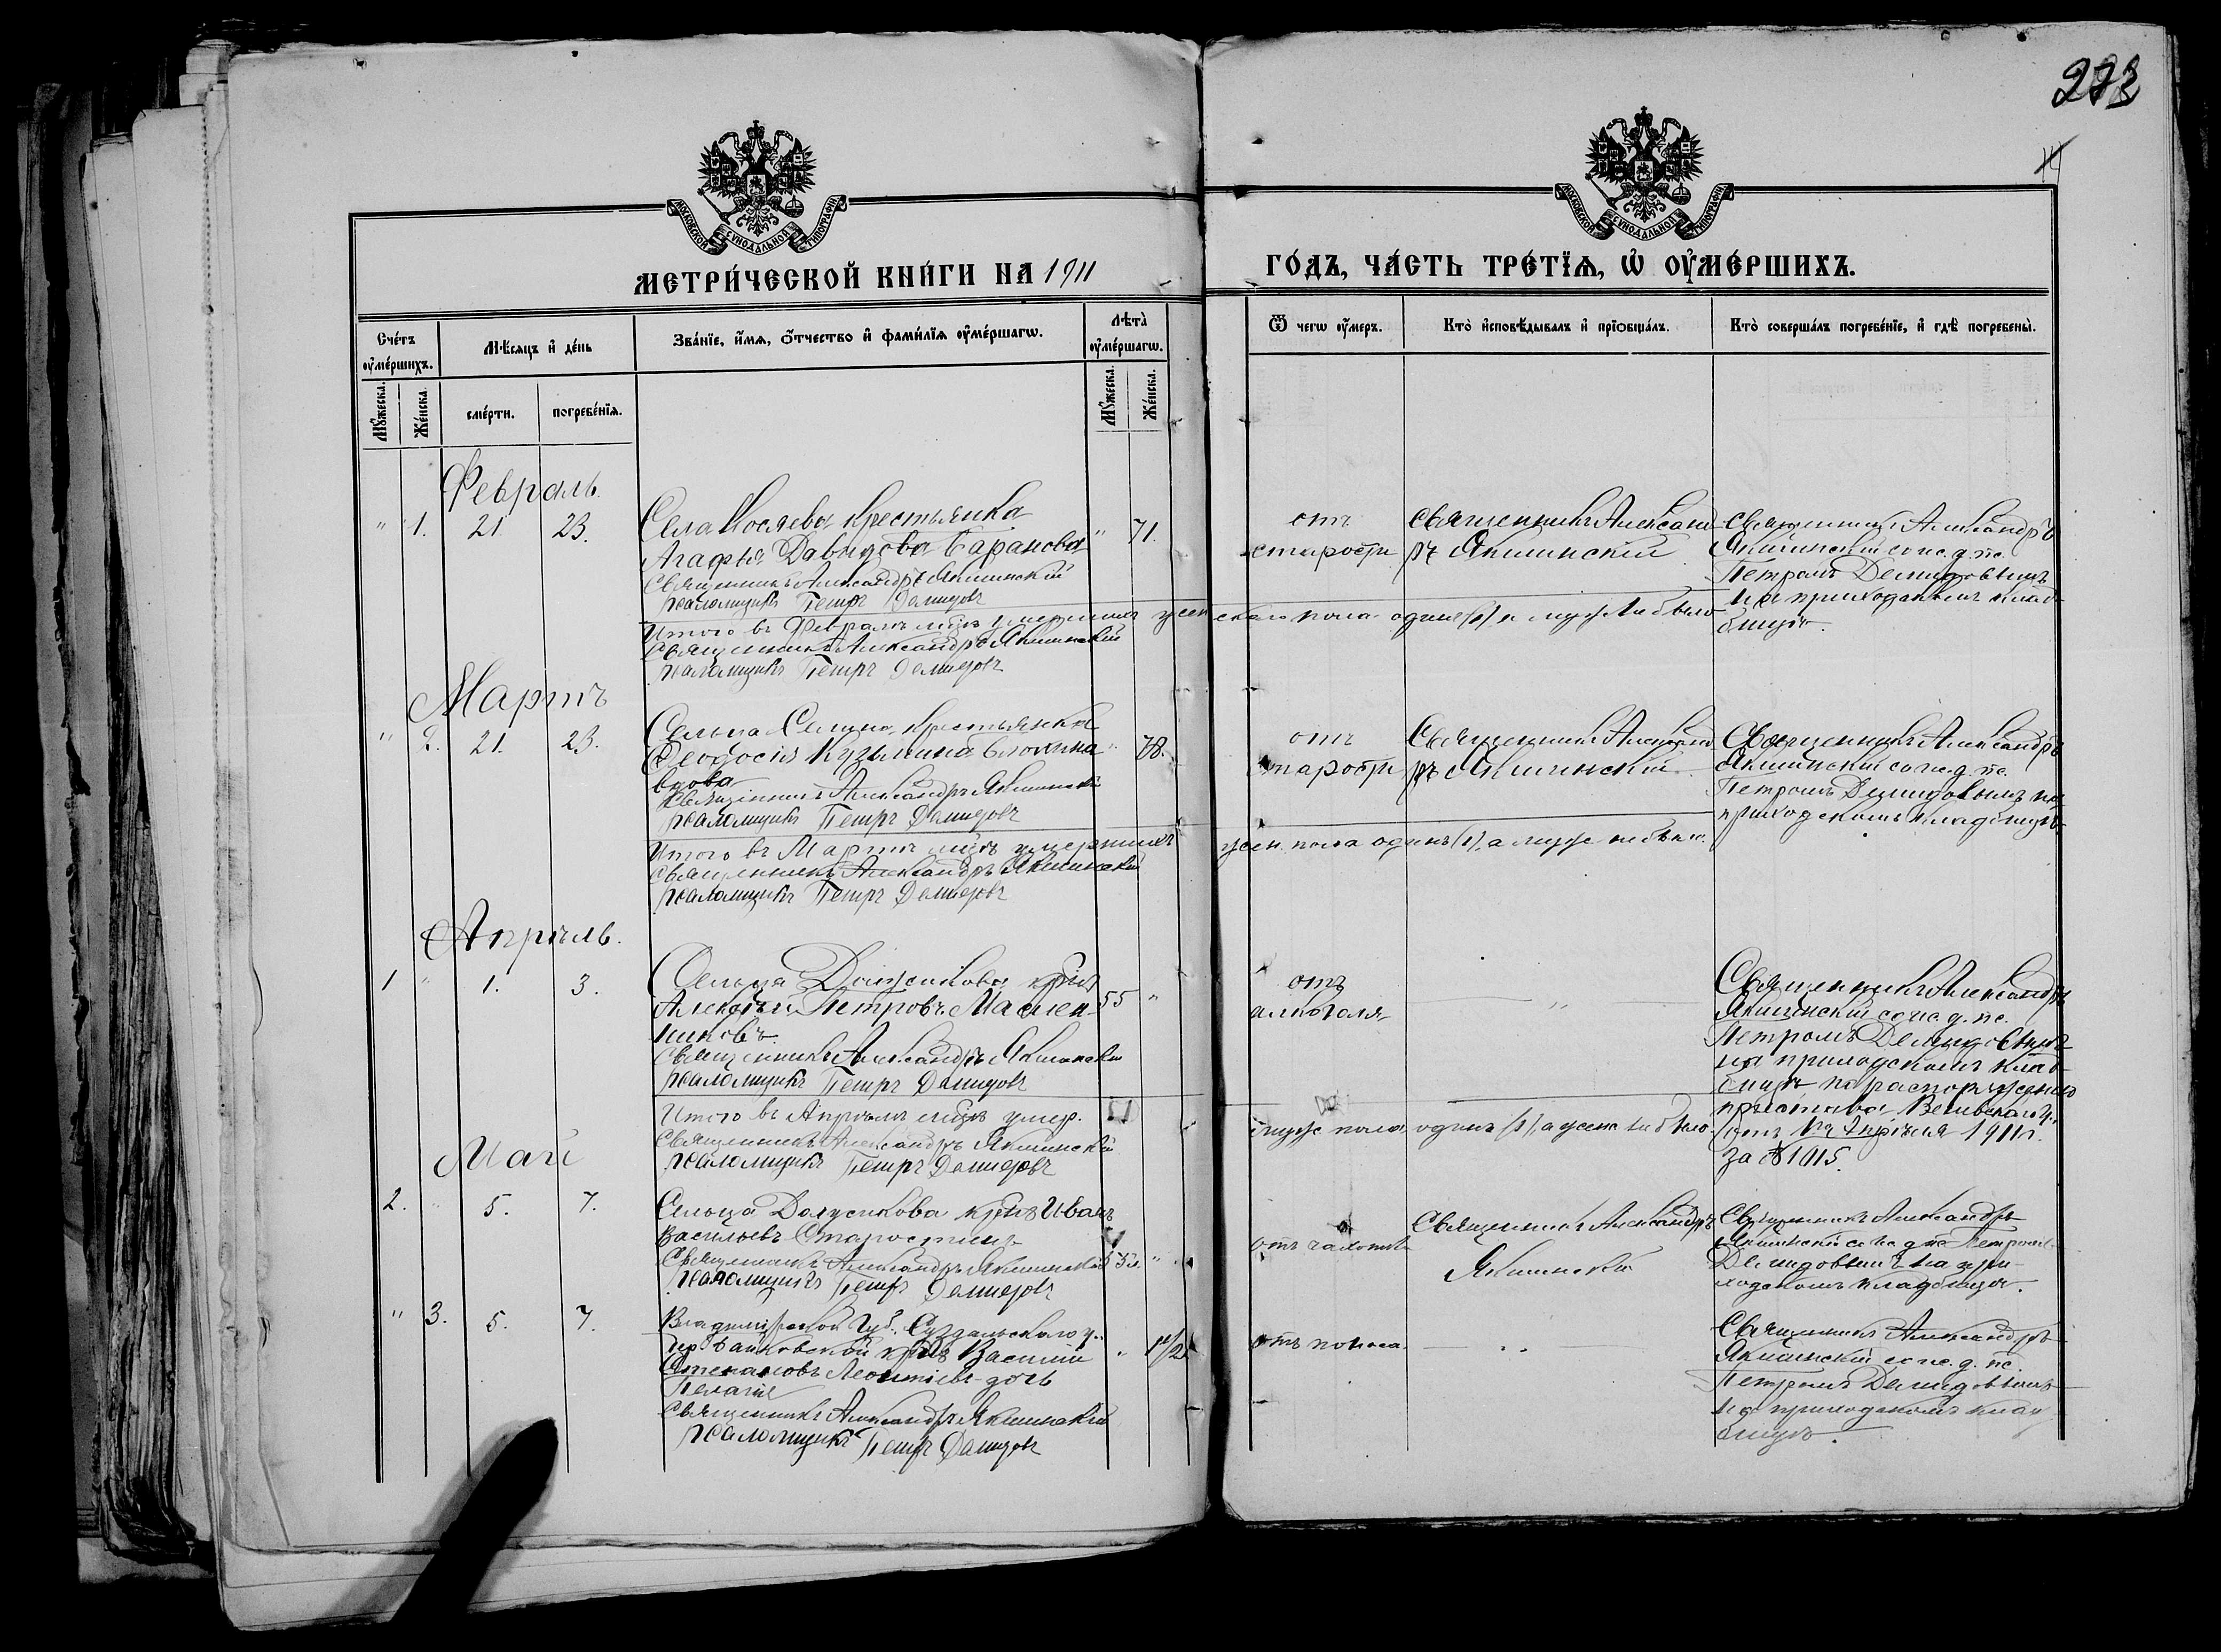 273
14
МОСКОВСКОЙ СУНОДАЛЬНОЙ ТИПОГРАФІИ
МОСКОВСКОЙ СУНОДАЛЬНОЙ ТИПОГРАФІИ
МЕТРИ́ЧЕСКОЙ КНИ́ГИ НА 1911
ГО́ДЪ, ЧА́СТЬ ТРЕ́ТІѦ, Ѡ҆ ОУ҆МЕ́РШИХЪ.
Сче́тъ оу҆ме́ршихъ.
Мѣ́сяцъ и҆ де́нь
Зва́нїе, и҆́мѧ, ѻ҆́тчество и҆ фами́лїѧ оу҆ме́ршагѡ.
Лѣта̀ оу҆ме́ршагѡ.
Ѿ чегѡ оу҆́меръ.
Кто̀ и҆сповѣ́дывалъ и҆ прїѡбща́лъ.
Кто̀ соверша́лъ погребе́нїе, и҆ гдѣ̀ погребены̀.
Мꙋ́жеска.
Же́нска.
сме́рти.
погребе́нїѧ.
Мꙋ́жеска.
Же́нска.
Февраль.
" 1. 21 23.
Села крестьянка
Агафья Давыдова Баранова
" 71.
Священникъ Александръ Якшинскій
Псаломщикъ Петръ Демидовъ
отъ
старости
Священникъ Александ
ръ Якшинскій
Священникъ Александръ
Якшинскій со ис. д. пс.
Петромъ Демидовымъ
на приходскомъ клад
бищѣ.
Итого въ Февралѣ мцѣ умершихъ женскаго пола одинъ (1) а муж. не было
Священникъ Александръ Якшинскій
Псаломщикъ Петръ Демидовъ
Мартъ
" 2. 21. 23.
Сельца крестьянка
Феодосія Кузьмина Блохина
вдова
" 78.
Священникъ Александръ Якшинскій
Псаломщикъ Петръ Демидовъ
отъ
старости
Священникъ Александ
ръ Якшинскій
Священникъ Александръ
Якшинскій со ис. д. пс.
Петромъ Демидовымъ на
приходскомъ кладбищѣ
Итого въ Мартѣ мцѣ умершихъ жен. пола одинъ (1), а муж не было.
Священникъ Александръ Якшинскій
Псаломщикъ Петръ Демидовъ
Апрѣль.
1 " 1. 3.
Сельца Долусикова кр̃нъ
Алексѣй Петровъ Маслен
никовъ
55 "
Священникъ Александръ Якшинскій
Псаломщикъ Петръ Демидовъ
отъ
алкоголя
"
Священникъ Александръ
Якшинскій со ис. д. пс.
Петромъ Демидовымъ
на приходскомъ клад
бищѣ по распоряженію
пристава
отъ Апрѣля 1911г.
за № 1015.
Итого въ Апрѣлѣ мцѣ умер. муж пола одинъ (1), а женс не было.
Священникъ Александръ Якшинскій
Псаломщикъ Петръ Демидовъ
Май
2. " 5. 7.
Сельца Долусикова кр̃нъ Иванъ
Васильевъ Старостинъ
53. "
Священникъ Александръ Якшинскій
Псаломщикъ Петръ Демидовъ
отъ чахотки
Священникъ Александръ
Якшинскій
Священникъ Александръ
Якшинскій со ис д пс Петромъ
Демидовымъ на при
ходскомъ кладбищѣ.
" 3. 5. 7.
Владимірской Губ. Суздальскаго у.
кр̃нъ Василій
Степановъ Леонтьевъ дочь
Пелагія
" 1 1/2
Священникъ Александръ Якшинскій
Псаломщикъ Петръ Демидовъ
отъ поноса.
Священникъ Александръ
Якшинскій со ис. д. пс.
Петромъ Демидовымъ
на приходскомъ клад
бищѣ.